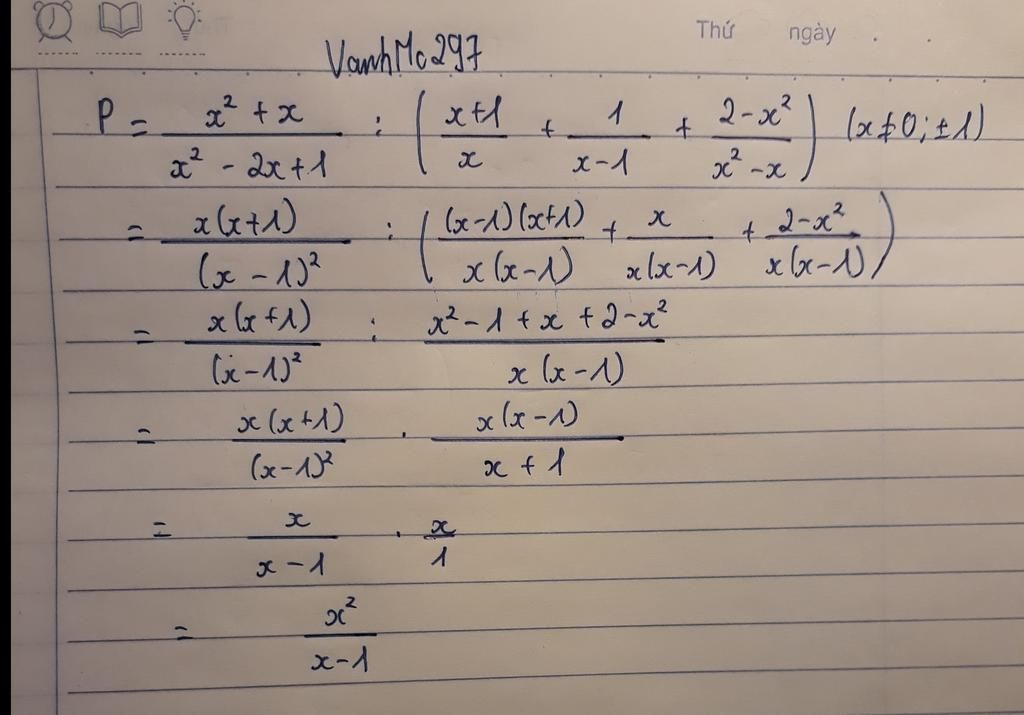 Thứ ngày . .
VanhMc297
P = \frac{x^2 + x}{x^2 - 2x + 1} : \left( \frac{x+1}{x} + \frac{1}{x-1} + \frac{2-x^2}{x^2-x} \right) (x ≠ 0; ± 1)
= \frac{x(x+1)}{(x-1)^2} : \left( \frac{(x-1)(x+1)}{x(x-1)} + \frac{x}{x(x-1)} + \frac{2-x^2}{x(x-1)} \right)
= \frac{x(x+1)}{(x-1)^2} : \frac{x^2 - 1 + x + 2 - x^2}{x(x-1)}
= \frac{x(x+1)}{(x-1)^2} . \frac{x(x-1)}{x+1}
= \frac{x}{x-1} . \frac{x}{1}
= \frac{x^2}{x-1}